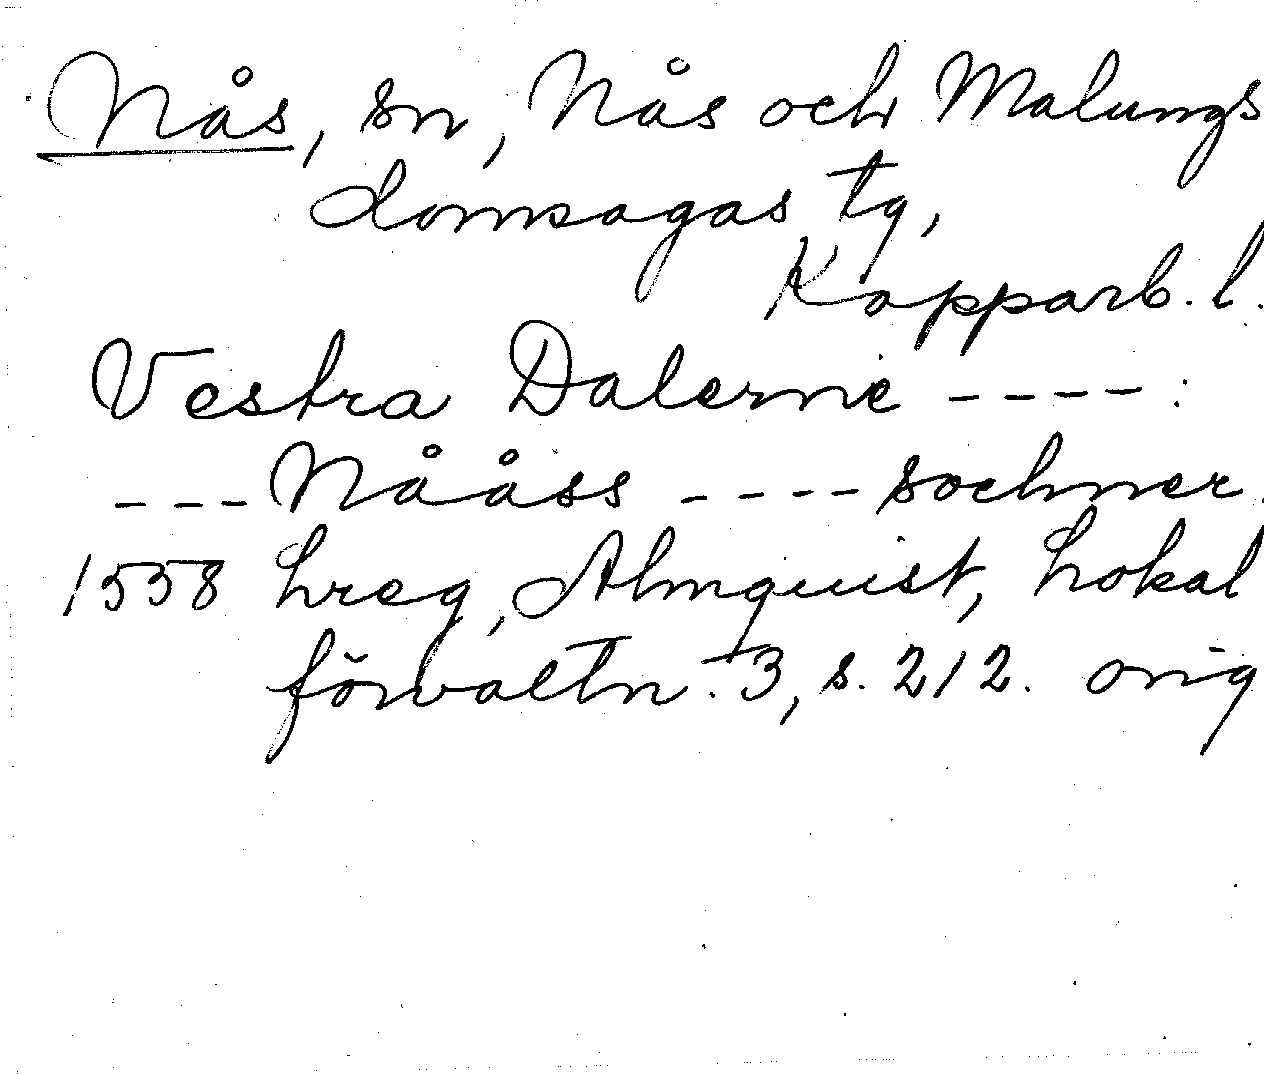 Nås, sn, Nås och Malungs
domsagas tg,
Kopparb. l.
Vestra Dalerne ---- :
--- Nååss ---- sochner.
1558 hreg, Almquist, Lokal
förvaltn. 3, s. 212. orig